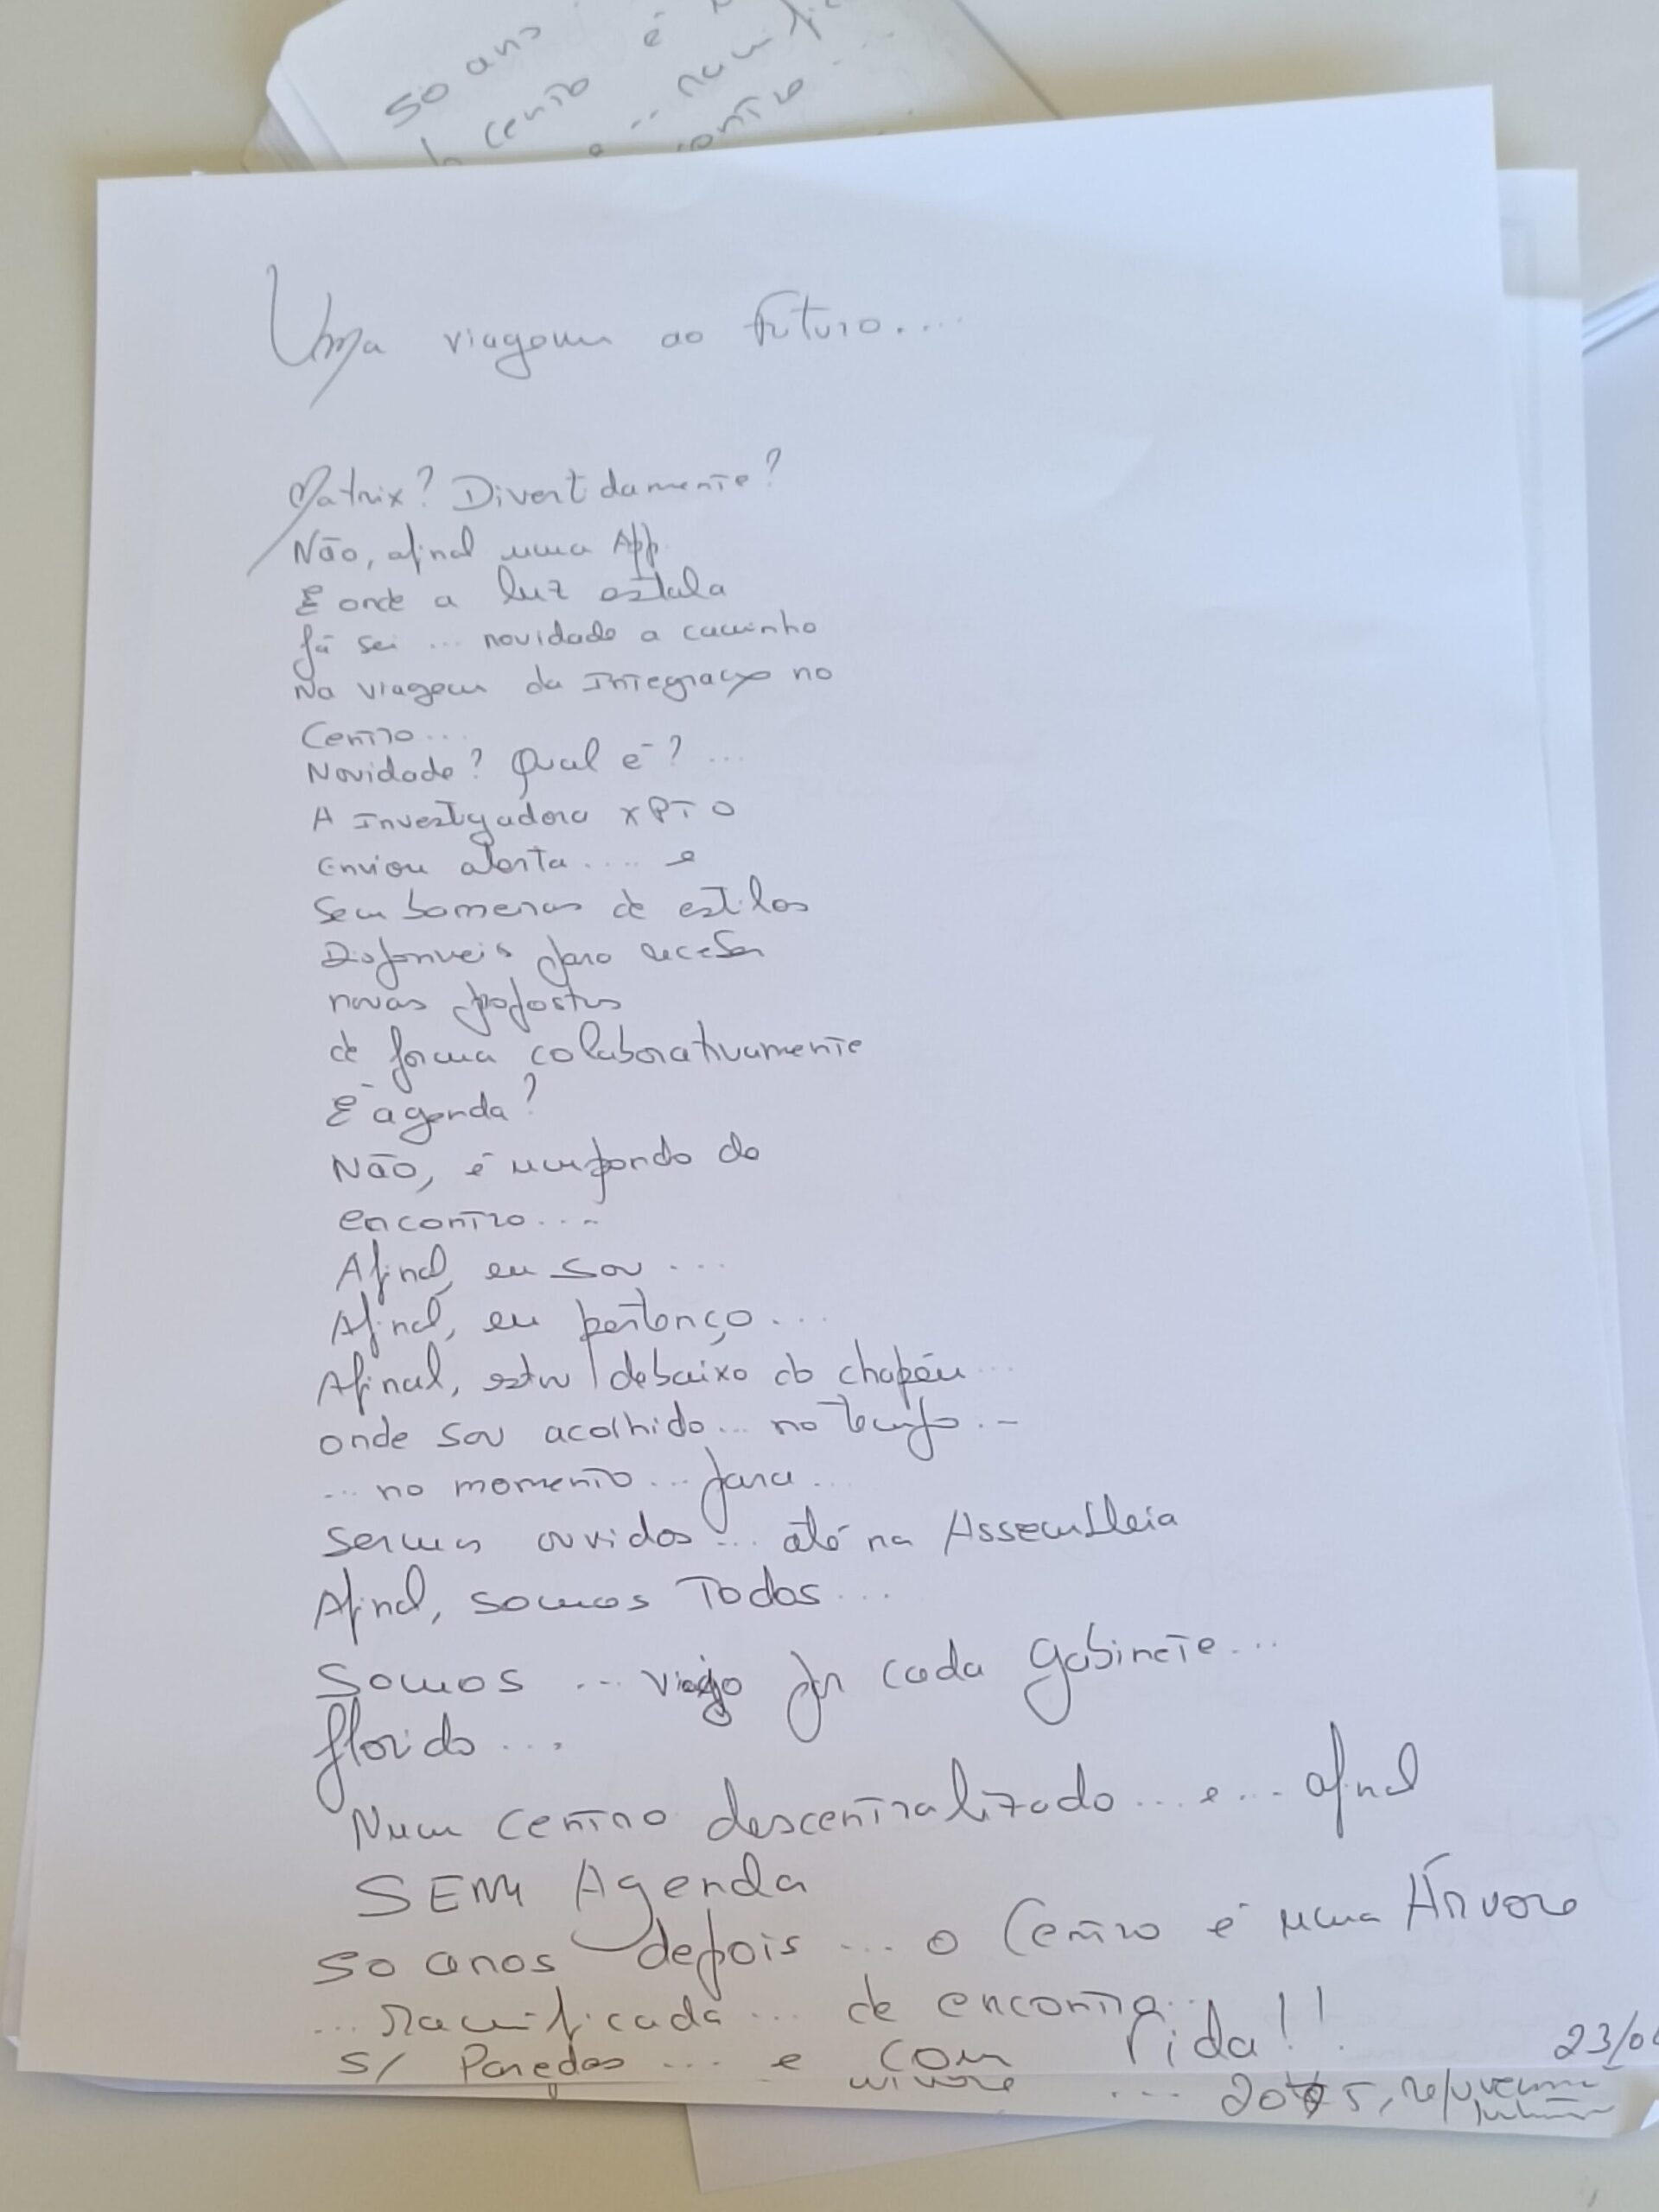 50 anos
centro é
Uma viagem ao futuro....
Matrix? Divertidamente?
Não, afinal uma App
E onde a luz estala
Já sei ... novidade a caminho
Na viagem da Integração no
Centro...
Novidade? Qual é? ...
A Investigadora XPTO
enviou alerta .... e
sem barreiras de estilos
Disponíveis para receber
novas propostas
de forma colaborativamente
É agenda?
Não, é um ponto de
encontro....
Afinal, eu sou ...
Afinal, eu pertenço...
Afinal, estou debaixo do chapéu ...
onde sou acolhido... no tempo...
... no momento... para...
sermos ouvidos... até na Assembleia
Afinal, somos Todos ...
Somos ... viajo por cada gabinete...
florido ...
Num centro descentralizado ... e ... afinal
SEM Agenda
50 anos depois ... o Centro é uma Árvore
... ramificada ... de encontro...
s/ Paredes ... e com Vida!!
23/0